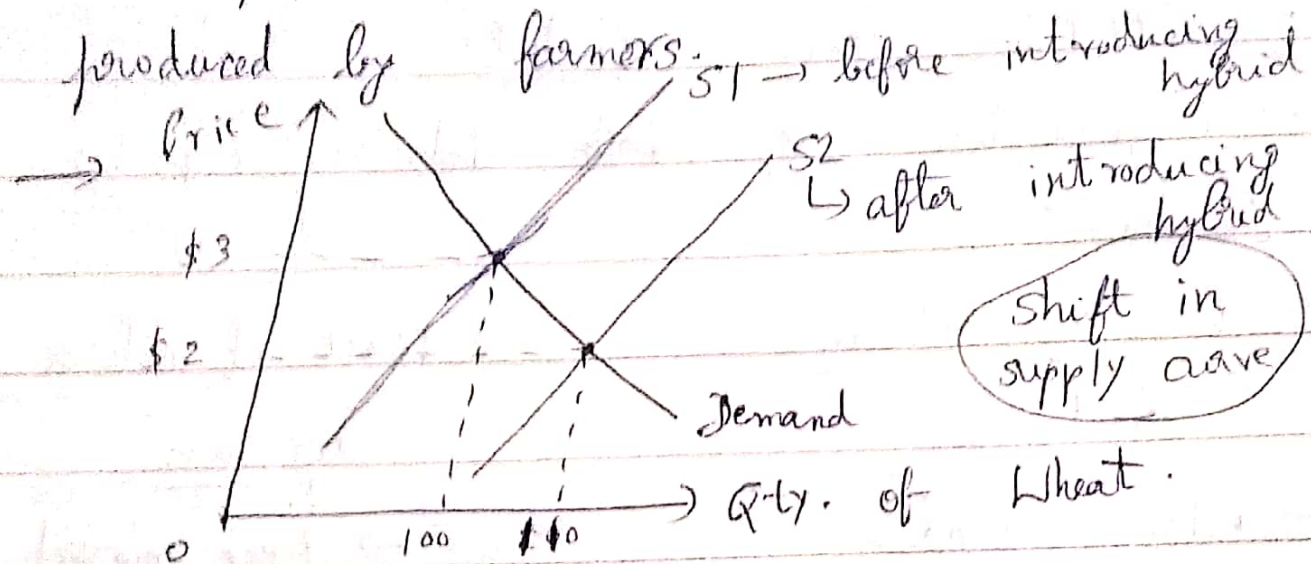 produced by farmers.
S1 → before introducing
hybrid
Price
→
S2
↳ after introducing
hybrid
$3
shift in
supply curve
$2
Demand
→ Qty. of Wheat.
0
100 110